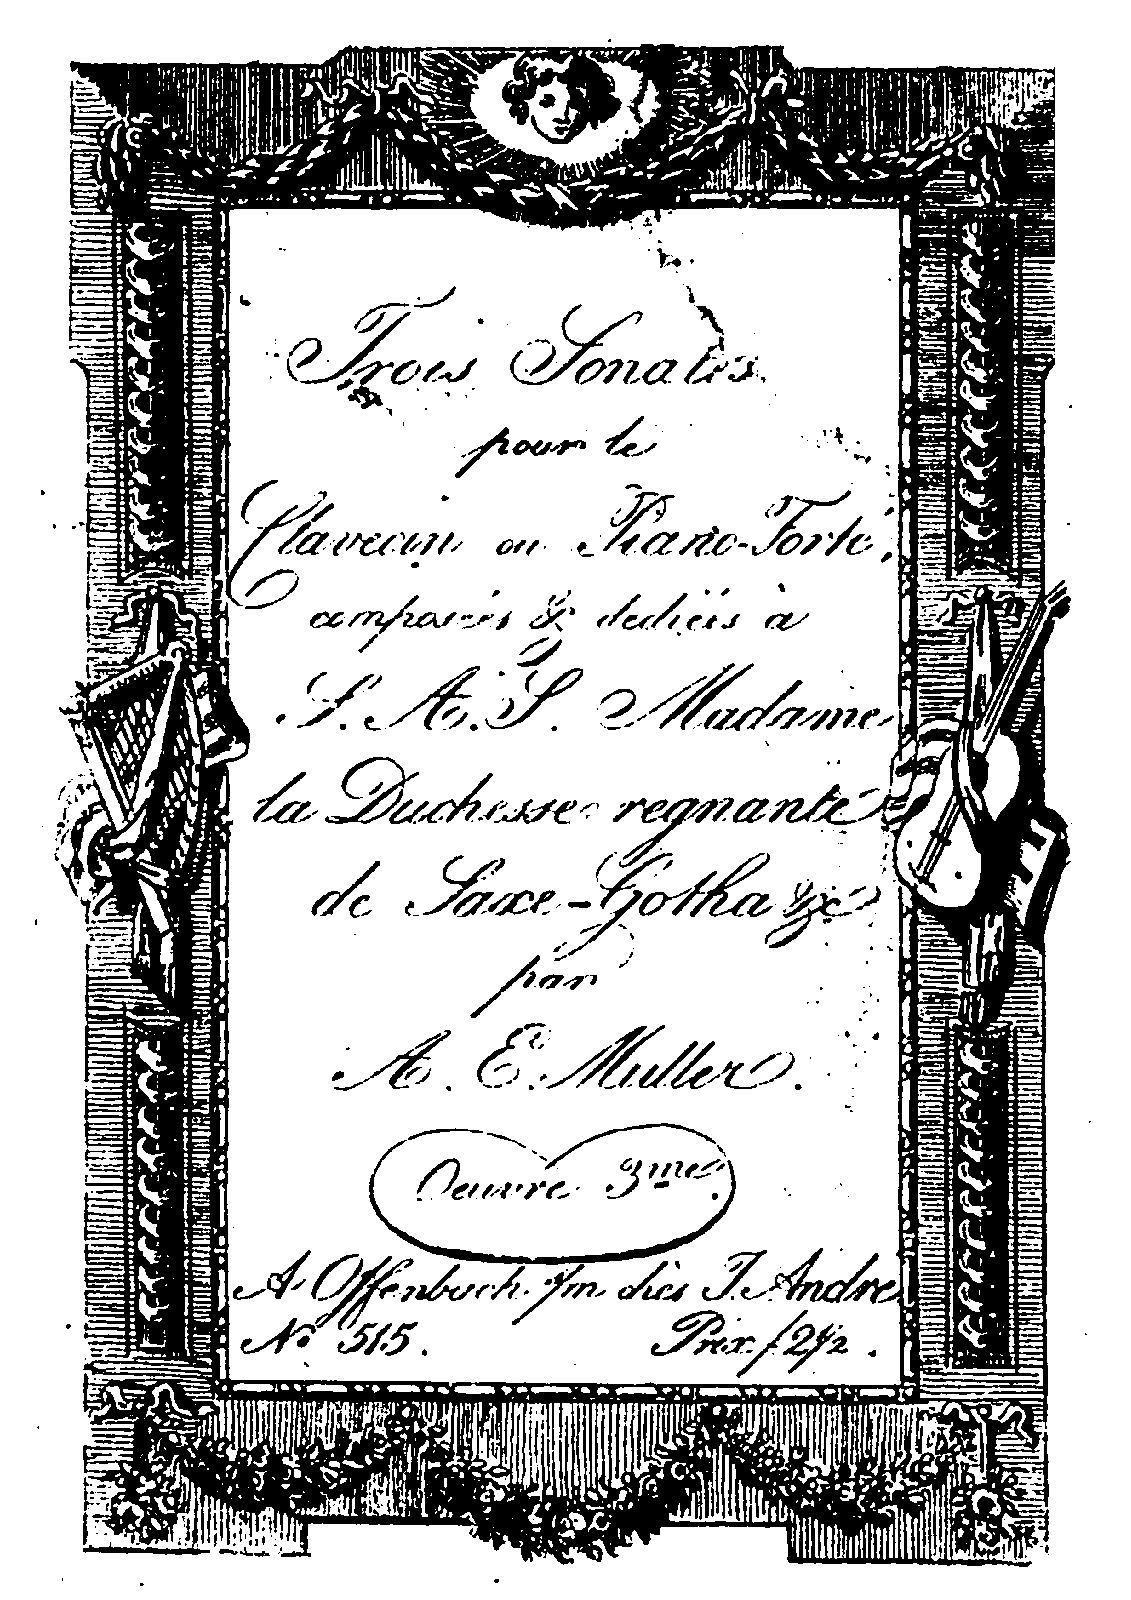 Trois Sonates
pour le
Clavecin ou Piano-Forté,
composées & dediées à
S. A. S. Madame
la Duchesse regnante
de Saxe-Gotha &c
par
A. E. Muller.
Oeuvre 3me.
A Offenbach s/m chés J. André
No 515. Prix f 2 1/2.